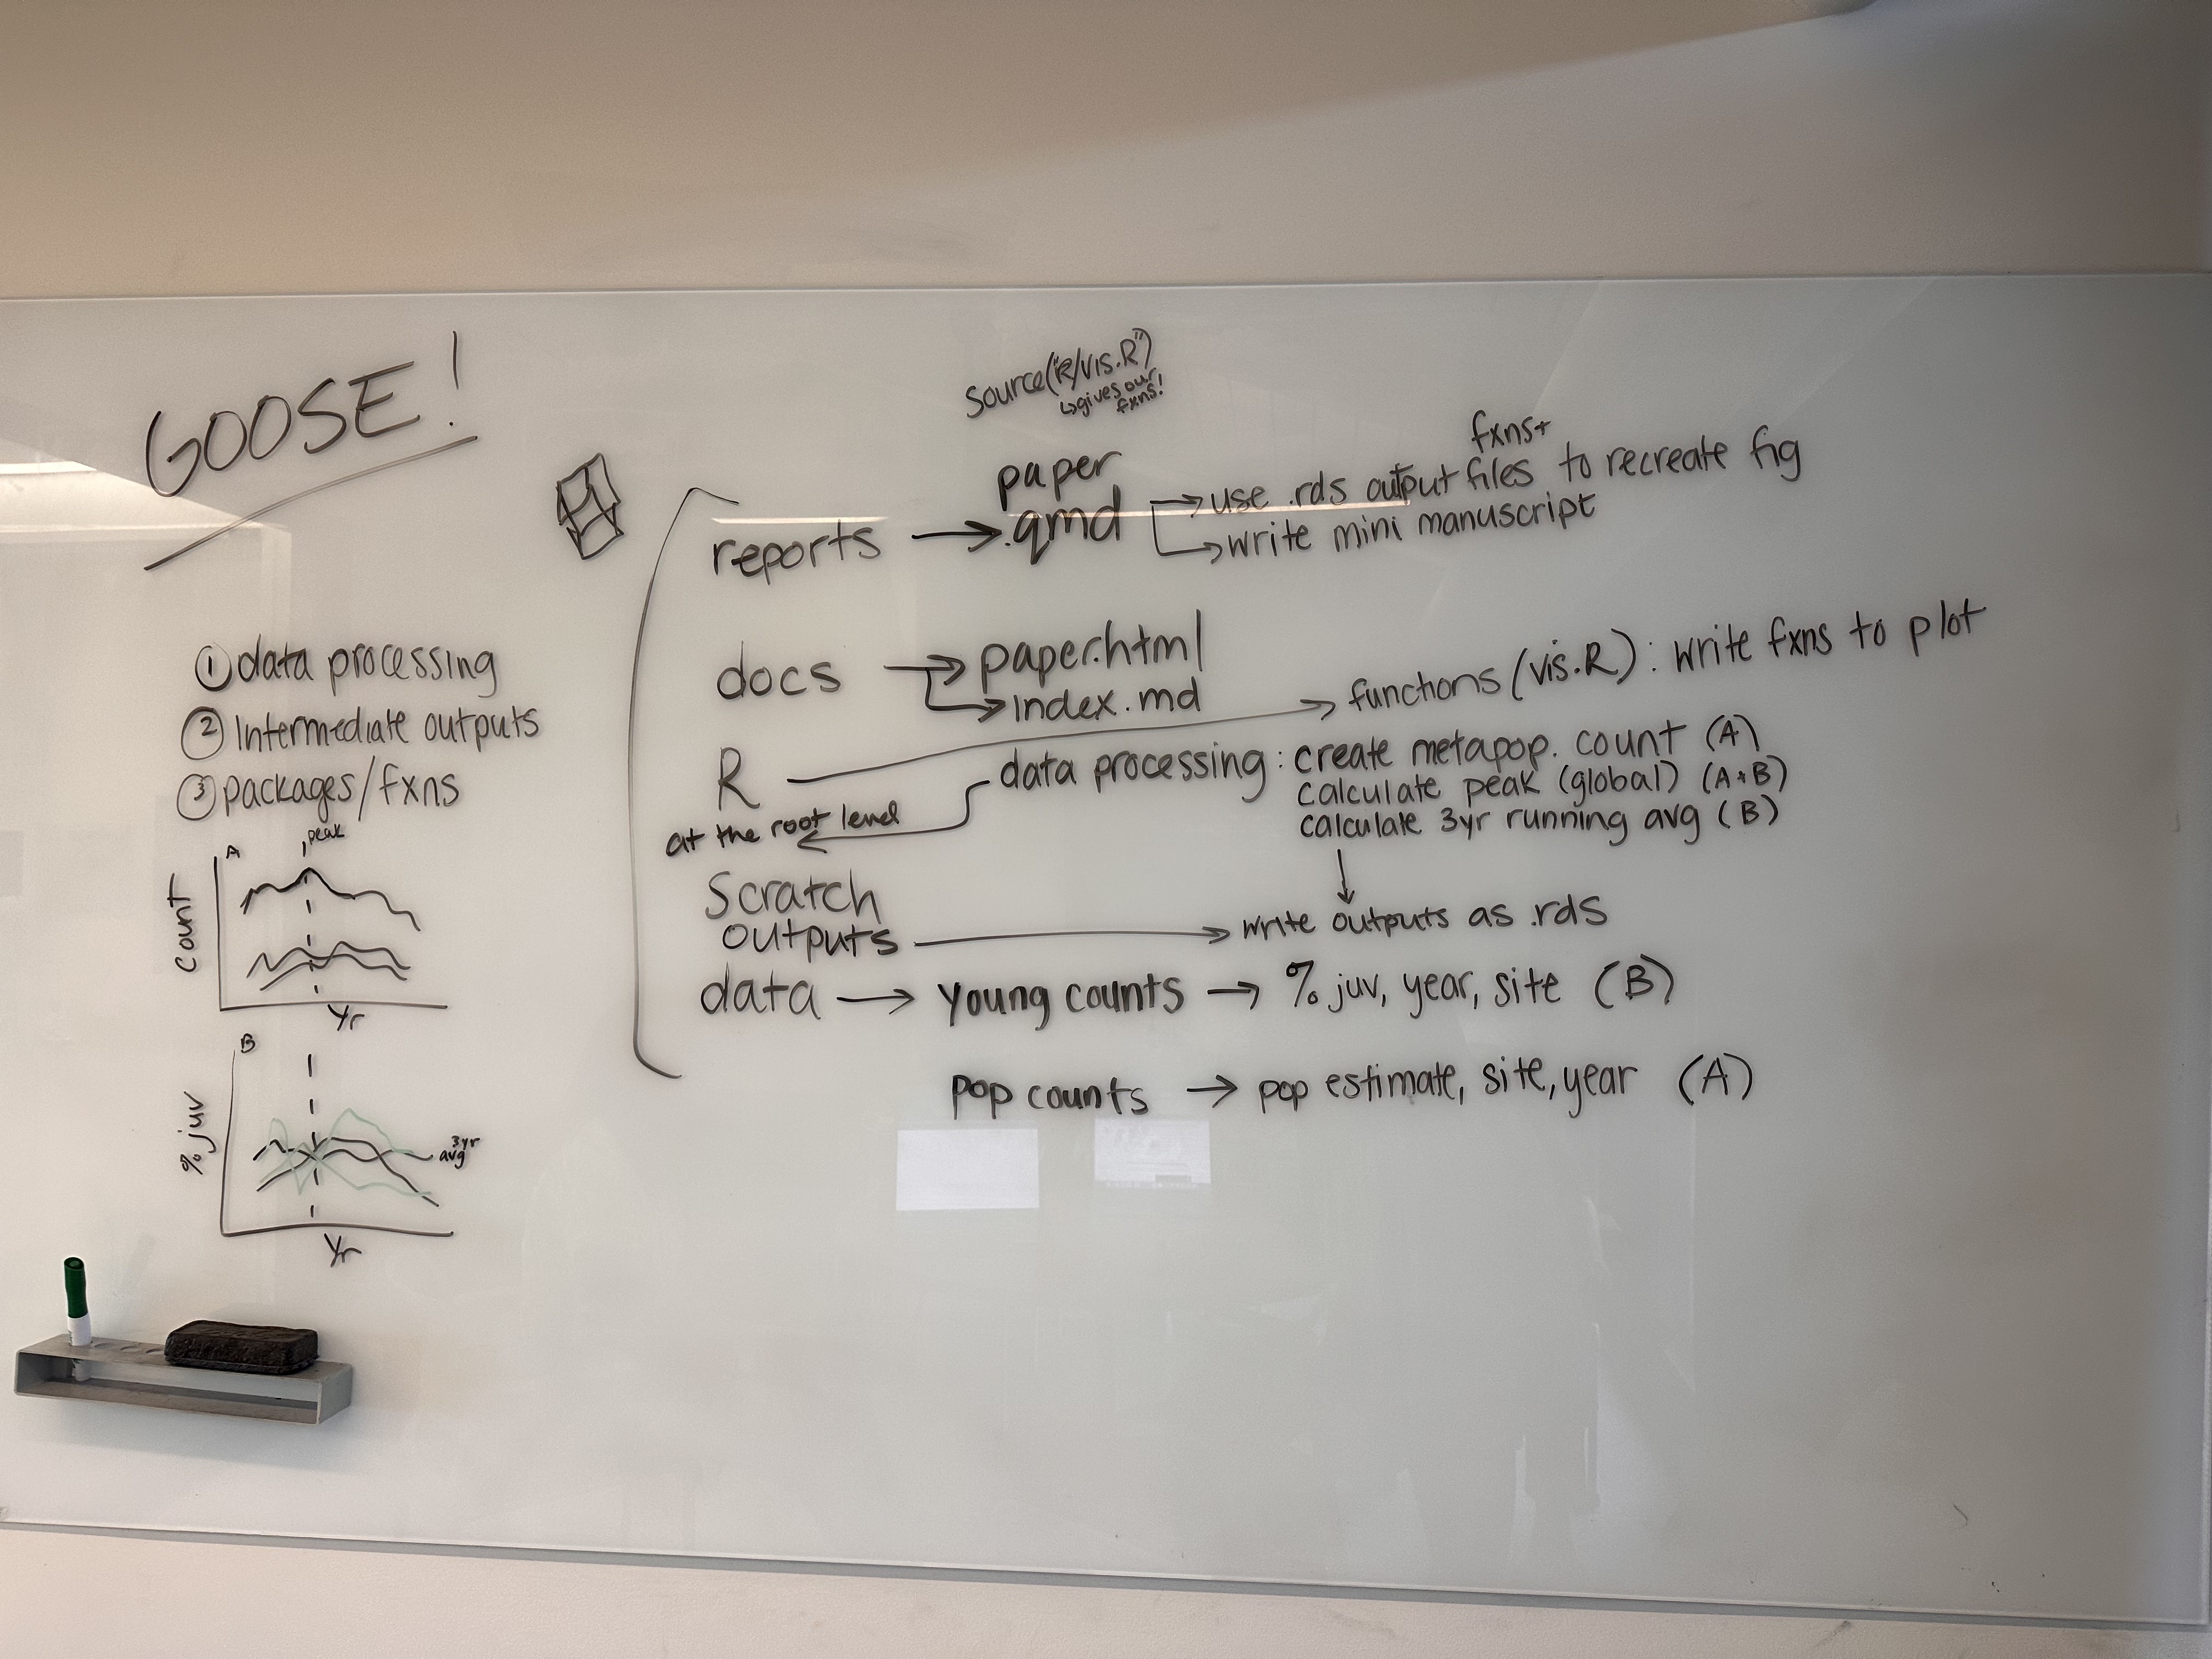 GOOSE!
① data processing
② Intermediate outputs
③ packages/fxns
A
peak
count
Yr
B
% juv
3yr
avg
Yr
source("R/vis.R")
↳gives our
fxns!
paper
reports → .qmd
fxns+
→ use .rds output files to recreate fig
→ write mini manuscript
docs → paper.html
→ index.md
R → functions (vis.R): write fxns to plot
at the root level
data processing: create metapop. count (A)
calculate peak (global) (A+B)
calculate 3yr running avg (B)
Scratch
outputs → write outputs as .rds
data → young counts → % juv, year, site (B)
pop counts → pop estimate, site, year (A)